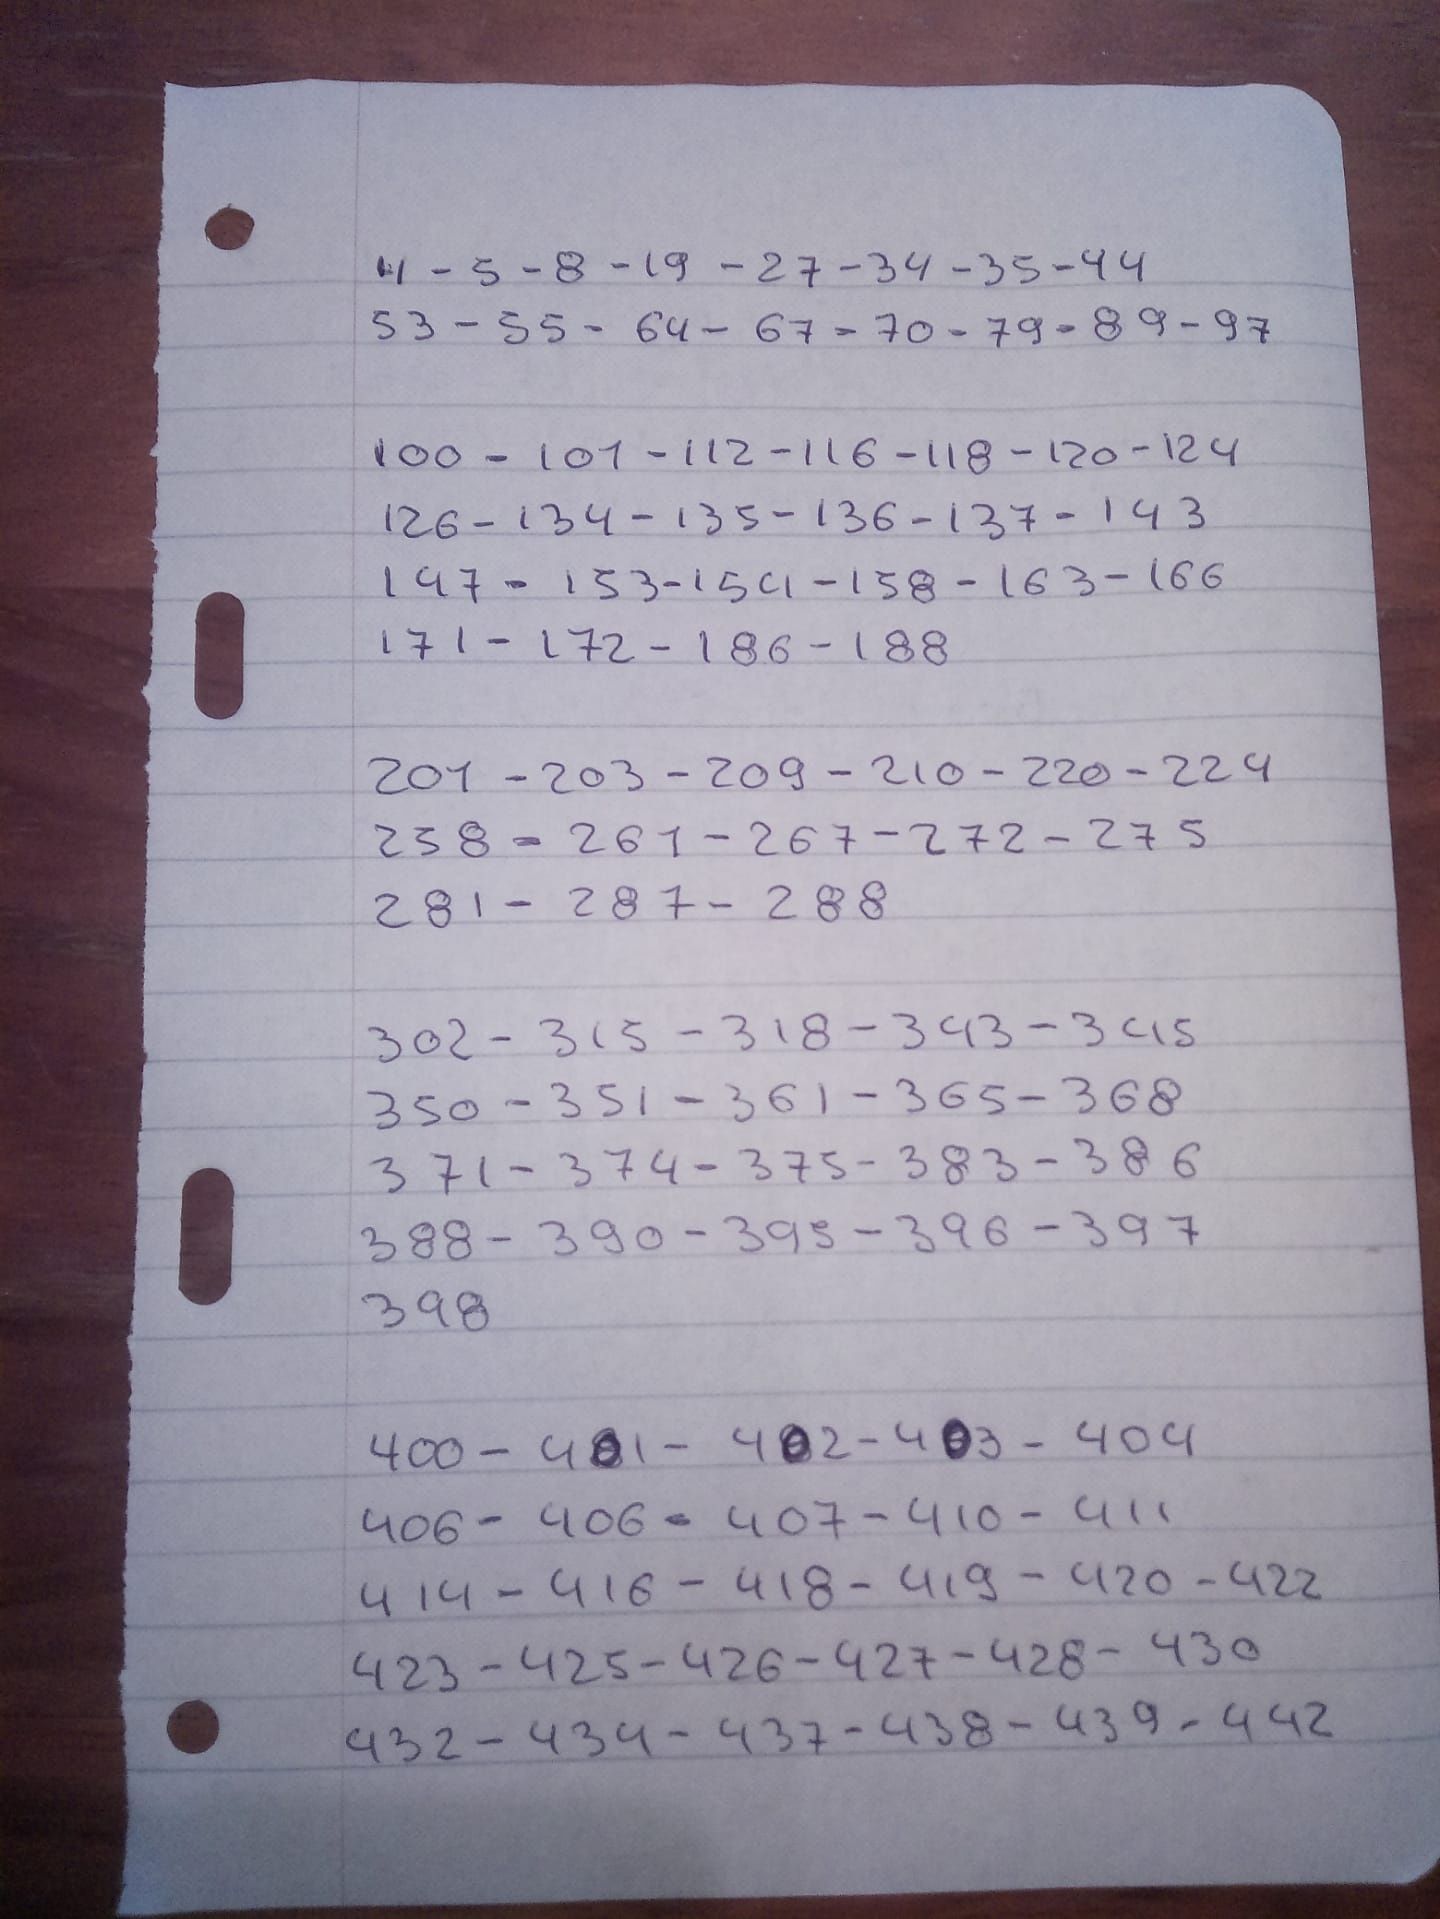 4 - 5 - 8 - 19 - 27 - 34 - 35 - 44
53 - 55 - 64 - 67 - 70 - 79 - 89 - 97
100 - 101 - 112 - 116 - 118 - 120 - 124
126 - 134 - 135 - 136 - 137 - 143
147 - 153 - 154 - 158 - 163 - 166
171 - 172 - 186 - 188
201 - 203 - 209 - 210 - 220 - 224
258 - 261 - 267 - 272 - 275
281 - 287 - 288
302 - 315 - 318 - 343 - 345
350 - 351 - 361 - 365 - 368
371 - 374 - 375 - 383 - 386
388 - 390 - 395 - 396 - 397
398
400 - 401 - 402 - 403 - 404
406 - 406 - 407 - 410 - 411
414 - 416 - 418 - 419 - 420 - 422
423 - 425 - 426 - 427 - 428 - 430
432 - 434 - 437 - 438 - 439 - 442